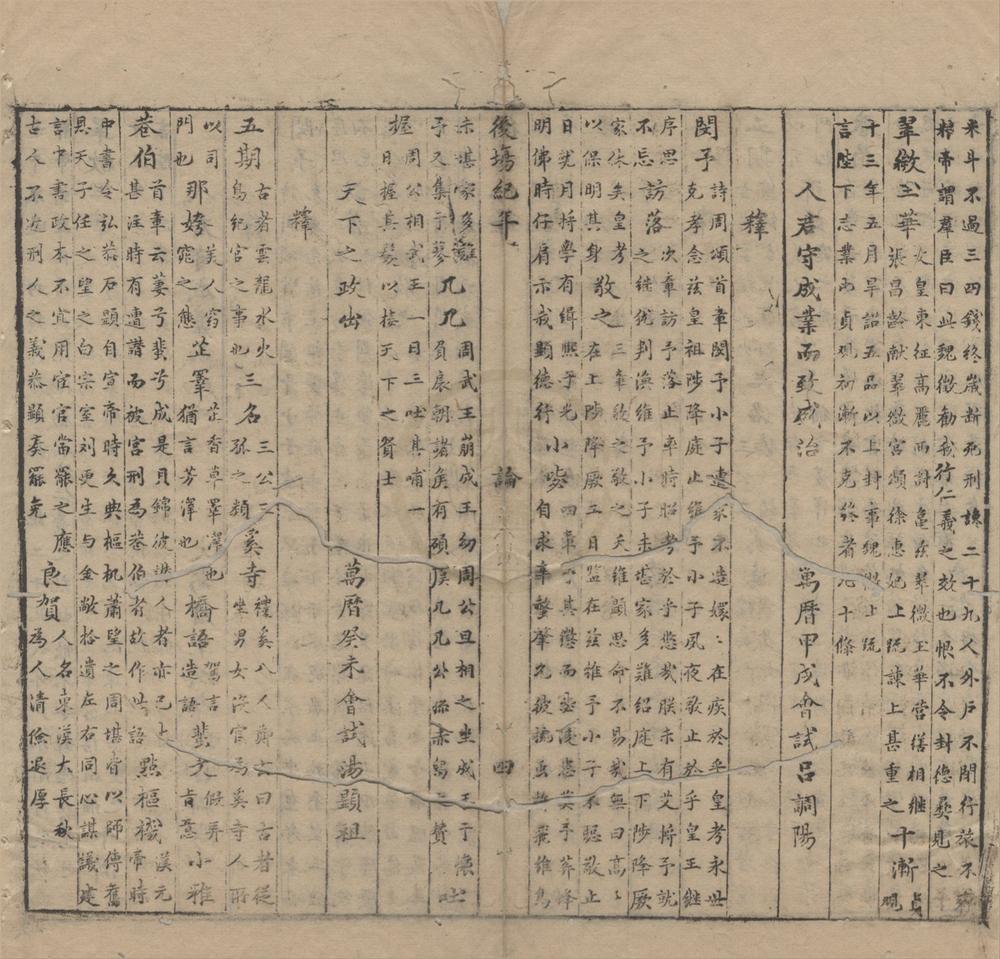 米斗不過三四錢終歲斷死刑讓二十九人外戶不閉行旅不齎
糧帝謂羣臣曰此魏徵勸我行仁義之效也恨不令封德彝見之
翠微玉華 文皇東征高麗西討龜茲翠微玉華營繕相繼
張昌齡献翠微宮頌徐惠妃上疏諫上甚重之 十漸 貞觀
十三年五月旱詔五品以上封事魏徵上疏
言陛下志業比貞觀初漸不克終者凡十條
人君守成業而致盛治 萬曆甲戌會試呂調陽
釋
閔予 詩周頌首章閔予小子遭家不造嬛〻在疚於乎皇考永世
克孝念茲皇祖陟降庭止維予小子夙夜敬止於乎皇王継
序思不忘 訪落 次章訪予落止率時昭考於乎悠哉朕未有艾将予就
之継犹判渙維予小子未堪家多難紹庭上下陟降厥
家休矣皇考以保明其身 敬之 三章敬之敬之天維顯思命不易哉無曰高〻
在上陟降厥士日監在茲維予小子不聰敬止
日就月将學有緝熙于光明佛時仔肩示我顯德行 小毖 四章予其懲而毖後患莫予荓蜂
自求辛螫肇允彼桃虫拚飛維鳥
後塲紀年 論 四
未堪家多難予又集于蓼 几几 周武王崩成王幼周公旦相之坐成王于懷
負扆朝諸矦有碩膚几几公孫赤舄之贊 吐
握 周公相武王一日三吐其哺一
日握其髮以接天下之賢士
天下之政出 萬曆癸未會試湯顯祖
釋
五期 古者雲龍水火
鳥紀官之事也 三名 三公三
孤之類 奚寺 禮奚八人鄭云曰古者從
坐男女没官為奚寺人所
以司門也 那姱 美人窈
窕之態 芷睪 芷香草睪澤也
猶言芳澤也 橋語 駕言
造語 蜚文 假弄
肯意 小雅
巷伯 首章云萋兮斐兮成是貝錦彼譖人者亦已太
甚注時有遭譖而被宮刑為巷伯者故作此語 點樞機 漢元
帝時
中書令弘恭石顯自宣帝時久典樞机蕭望之周堪皆以師傅舊
恩天子任之望之白宗室刘更生与金敞拾遺左右同心謀議建
言中書政本不宜用宦官當罷之應
古人不近刑人之義恭顯奏罷免 良賀 人名東漢大長秋
為人清儉退厚